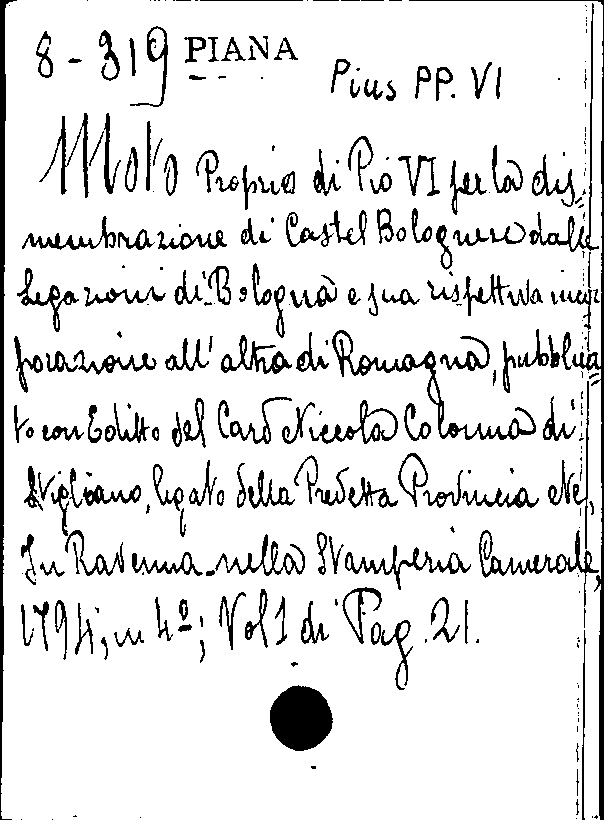 8-319 PIANA
Pius PP. VI
Moto Proprio di Pio VI per la dis
membrazione di Castel Bolognese dalle
Legazioni di Bologna e sua rispettiva incor
porazione all' altra di Romagna, pubblica
to con Editto del Card Niccola Colonna di
Stigliano, legato della Predetta Provincia etc,
In Ravenna nella Stamperia Camerale,
1794; in 4º; Vol 1 di Pag. 21.